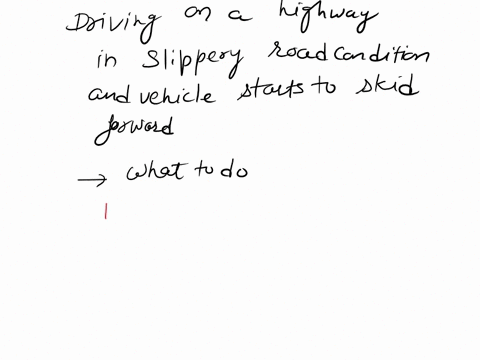 Driving on a highway
in Slippery road condition
and vehicle starts to skid
forward
→ what to do